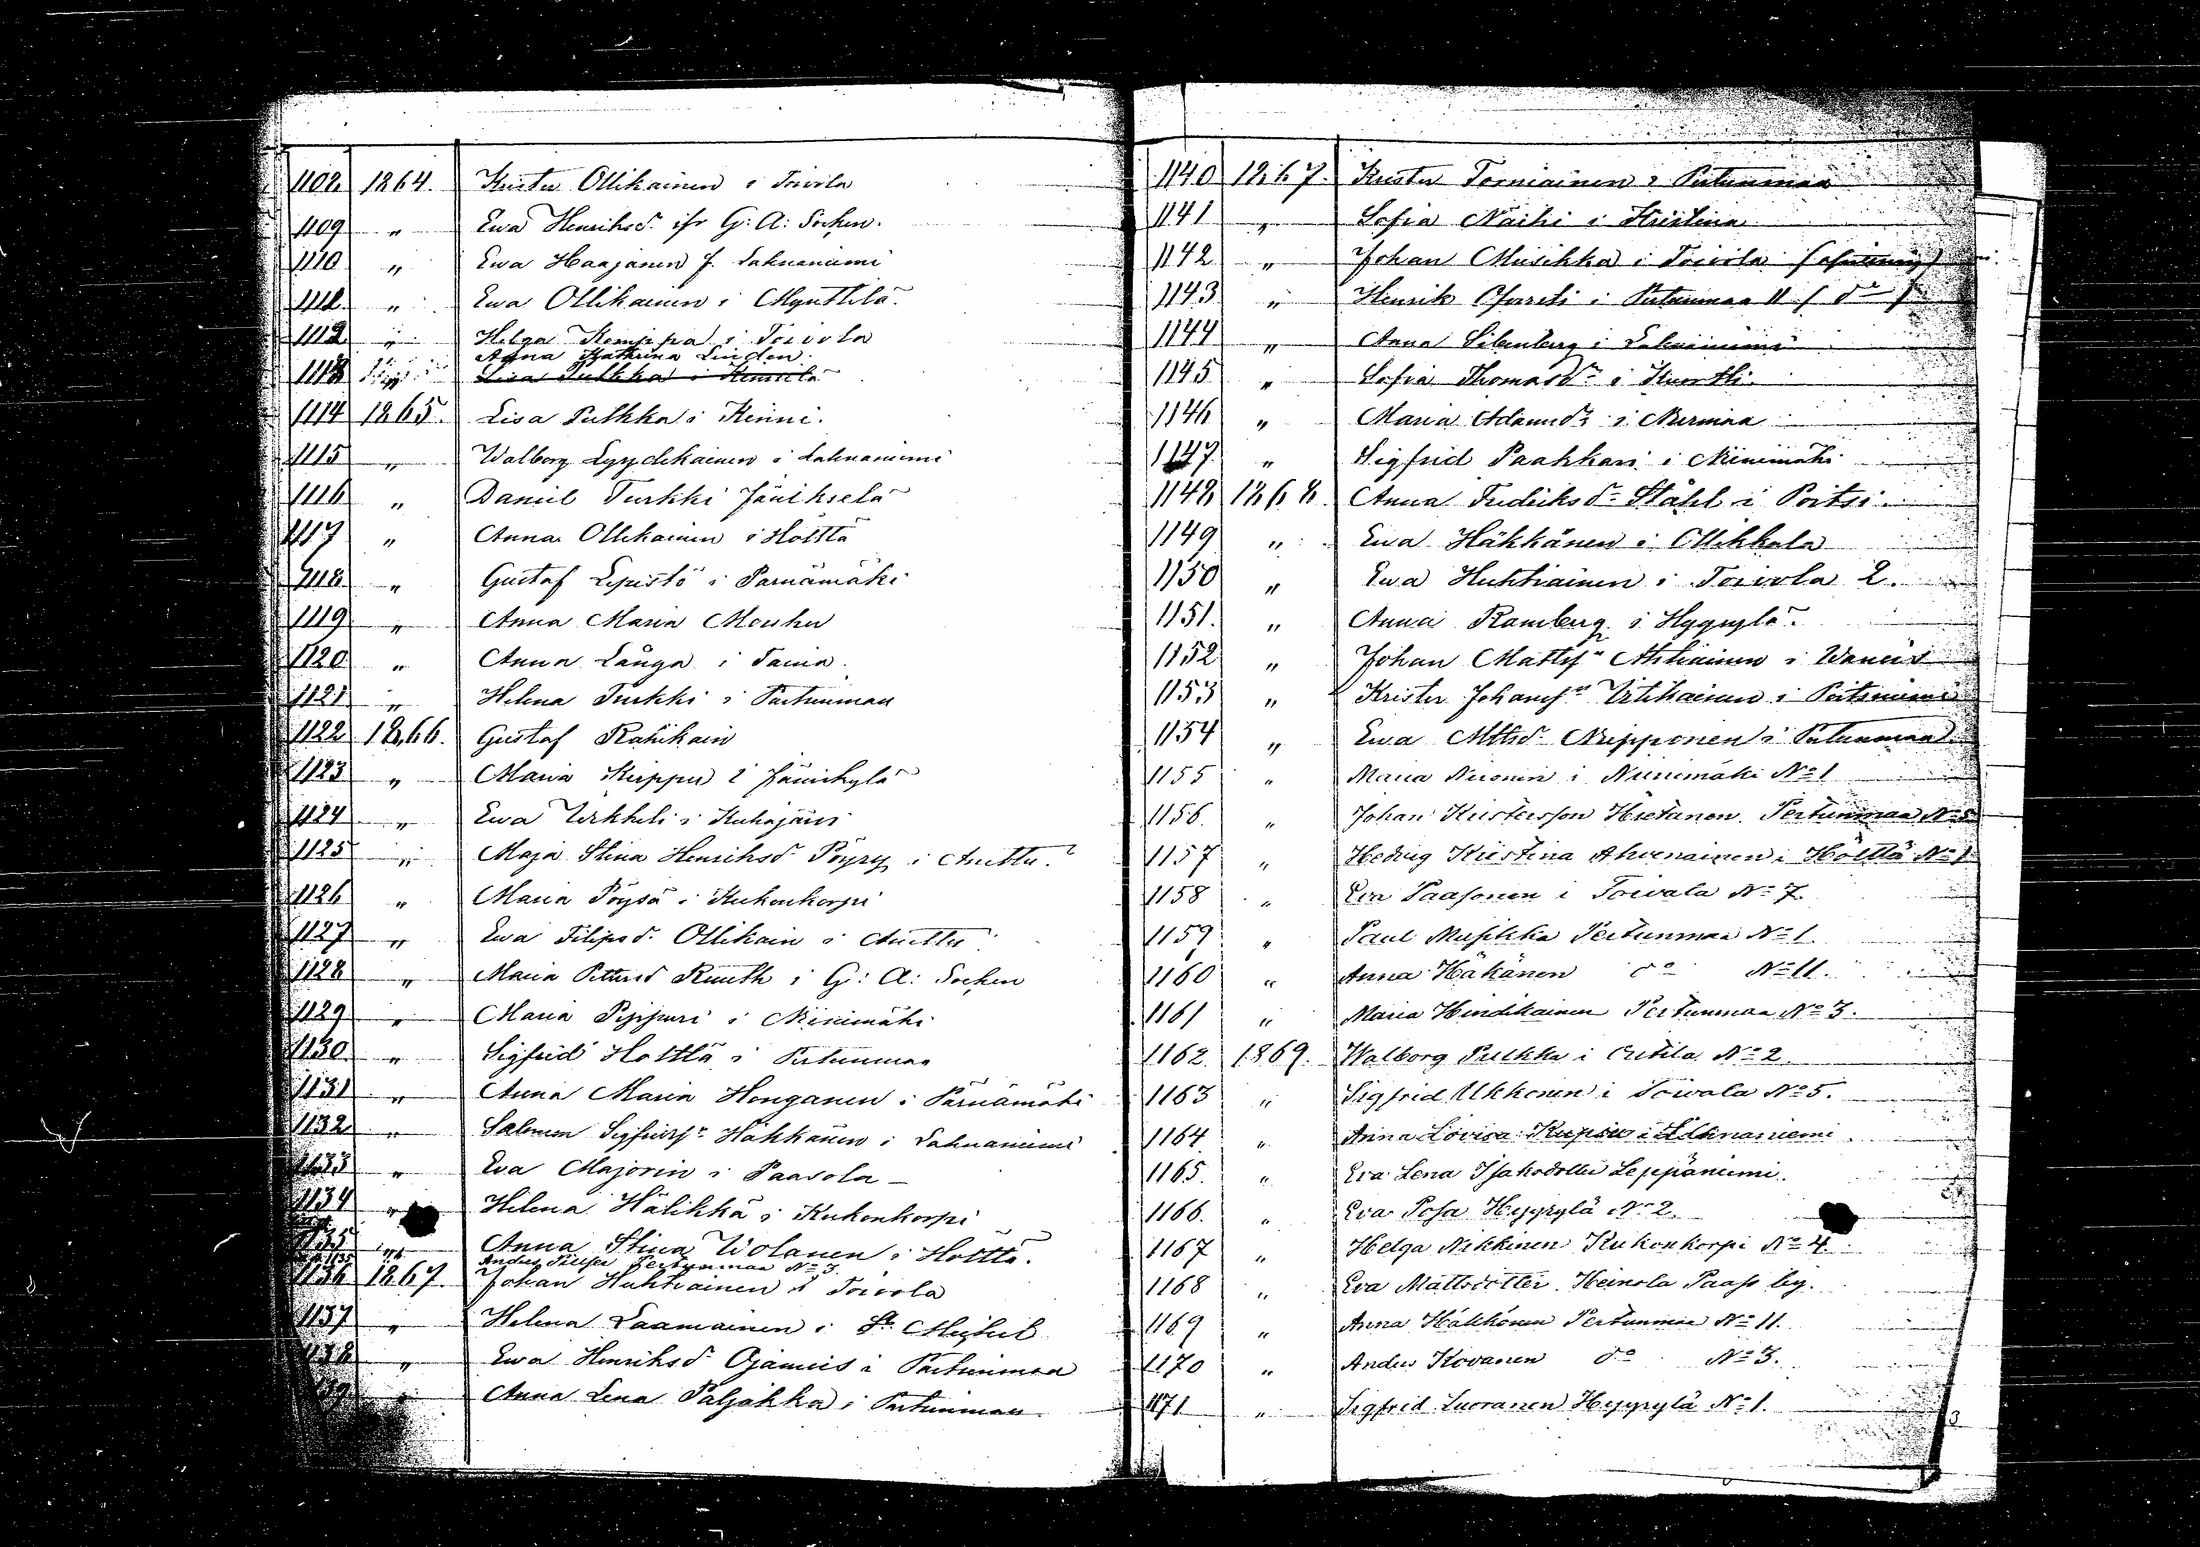 1108 1864. Krister Ollikainen i Toivola
1109 " Ewa Henriksd. ifr G: A: Socken.
1110 " Ewa Haajanen f. Lahnaniemi
1111 " Ewa Ollikainen i Mynttilä
1112 " Helga Kemppa i Toivola
Anna Kathrina Linden
1113 " Lisa Pulkka i
1114 1865. Lisa Pulkka i Kinni.
1115 " Walborg Lyydikainen i Lahnaniemi
1116 " Daniel Turkki
1117 " Anna Ollikainen i Hölttä
1118 " Gustaf Lepistö i Parnämäki
1119 " Anna Maria Mouhu
1120 " Anna Långa i
1121 " Helena Turkki i Pertunmaa
1122 1866. Gustaf Rahikain
1123 " Maria Kirppu i Jämikylä
1124 " Ewa i Kuhajärvi
1125 " Maja Stina Henriksd. Pöyry i Auttu
1126 " Maria Pöysä i Kukonkorpi
1127 " Ewa Filipsd. Ollikain i Auttu
1128 " Maria Pettersd Ruuth i G: A: Socken
1129 " Maria Pippuri i Nienimäki
1130 " Sigfrid Holttä i Pertunmaa
1131 " Anna Maria Honganen i Pärnämäki
1132 " Salomon Sigfridsn Häkkänen i Lahnaniemi
1133 " Eva Majorin i Paasola
1134 " Helena Hälikkä i Kukonkorpi
1135 " Anna Stina Wolanen i Holttä.
Anders Pertunmaa No 3.
1136 1867. Johan Huhtiainen i Toivola
1137 " Helena Laamainen i St Michel
1138 " Ewa Henriksd Ojamies i Pertunmaa
1139 " Anna Lena Paljakka i Pertunmaa
1140 1867. Krister Torniainen i Pertunmaa
1141 " Sofia Näihi i Kristina
1142 " Johan Musikka i Toivola
1143 " Henrik i Pertunmaa 11 (do)
1144 " Anna Silenberg i Lahnaniemi
1145 " Sofia Thomasdr i Kuortti.
1146 " Maria Adamsdr i Nurmaa
1147 " Sigfrid Paakkari i Nienimäki
1148 1868. Anna Fredriksdr Ståhl i Poitsi.
1149 " Ewa Häkkänen i Ollikkala
1150 " Ewa Huhtiainen i Toivola 2.
1151. " Anna Ramberg i Hyyrylä.
1152 " Johan Mattsn Ahtiainen i
1153 " Krister Johansn Urtikainen i
1154 " Ewa Mttsd. Nipponen i Pertunmaa
1155 " Maria Nironen i Nienimäki No 1
1156 " Johan Kristersson Hietanen. Pertunmaa No 5
1157 " Hedvig Kristina Ahvenainen i Hölttä No 1
1158 " Eva Paasonen i Toivala No 7.
1159 " Paul Musikka Pertunmaa No 1
1160 " Anna Häkänen do No 11.
1161 " Maria Hindikainen Pertunmaa No 3.
1162. 1869. Walborg Pulkka i Outila No 2.
1163 " Sigfrid Ukkonen i Toivala No 5.
1164. " Anna Lovisa Kupsu i Lahnaniemi
1165. " Eva Lena Isaksdotter Leppäniemi.
1166. " Eva Posa Hyyrylä No 2.
1167 " Helga Nikkinen Kukonkorpi No 4.
1168 " Eva Mattsdotter. Heinola Paaso by.
1169 " Anna Häkkönen Pertunmaa No 11.
1170 " Anders Kovanen do No 3.
1171 " Sigfrid Luoranen Hyyrylä No 1.